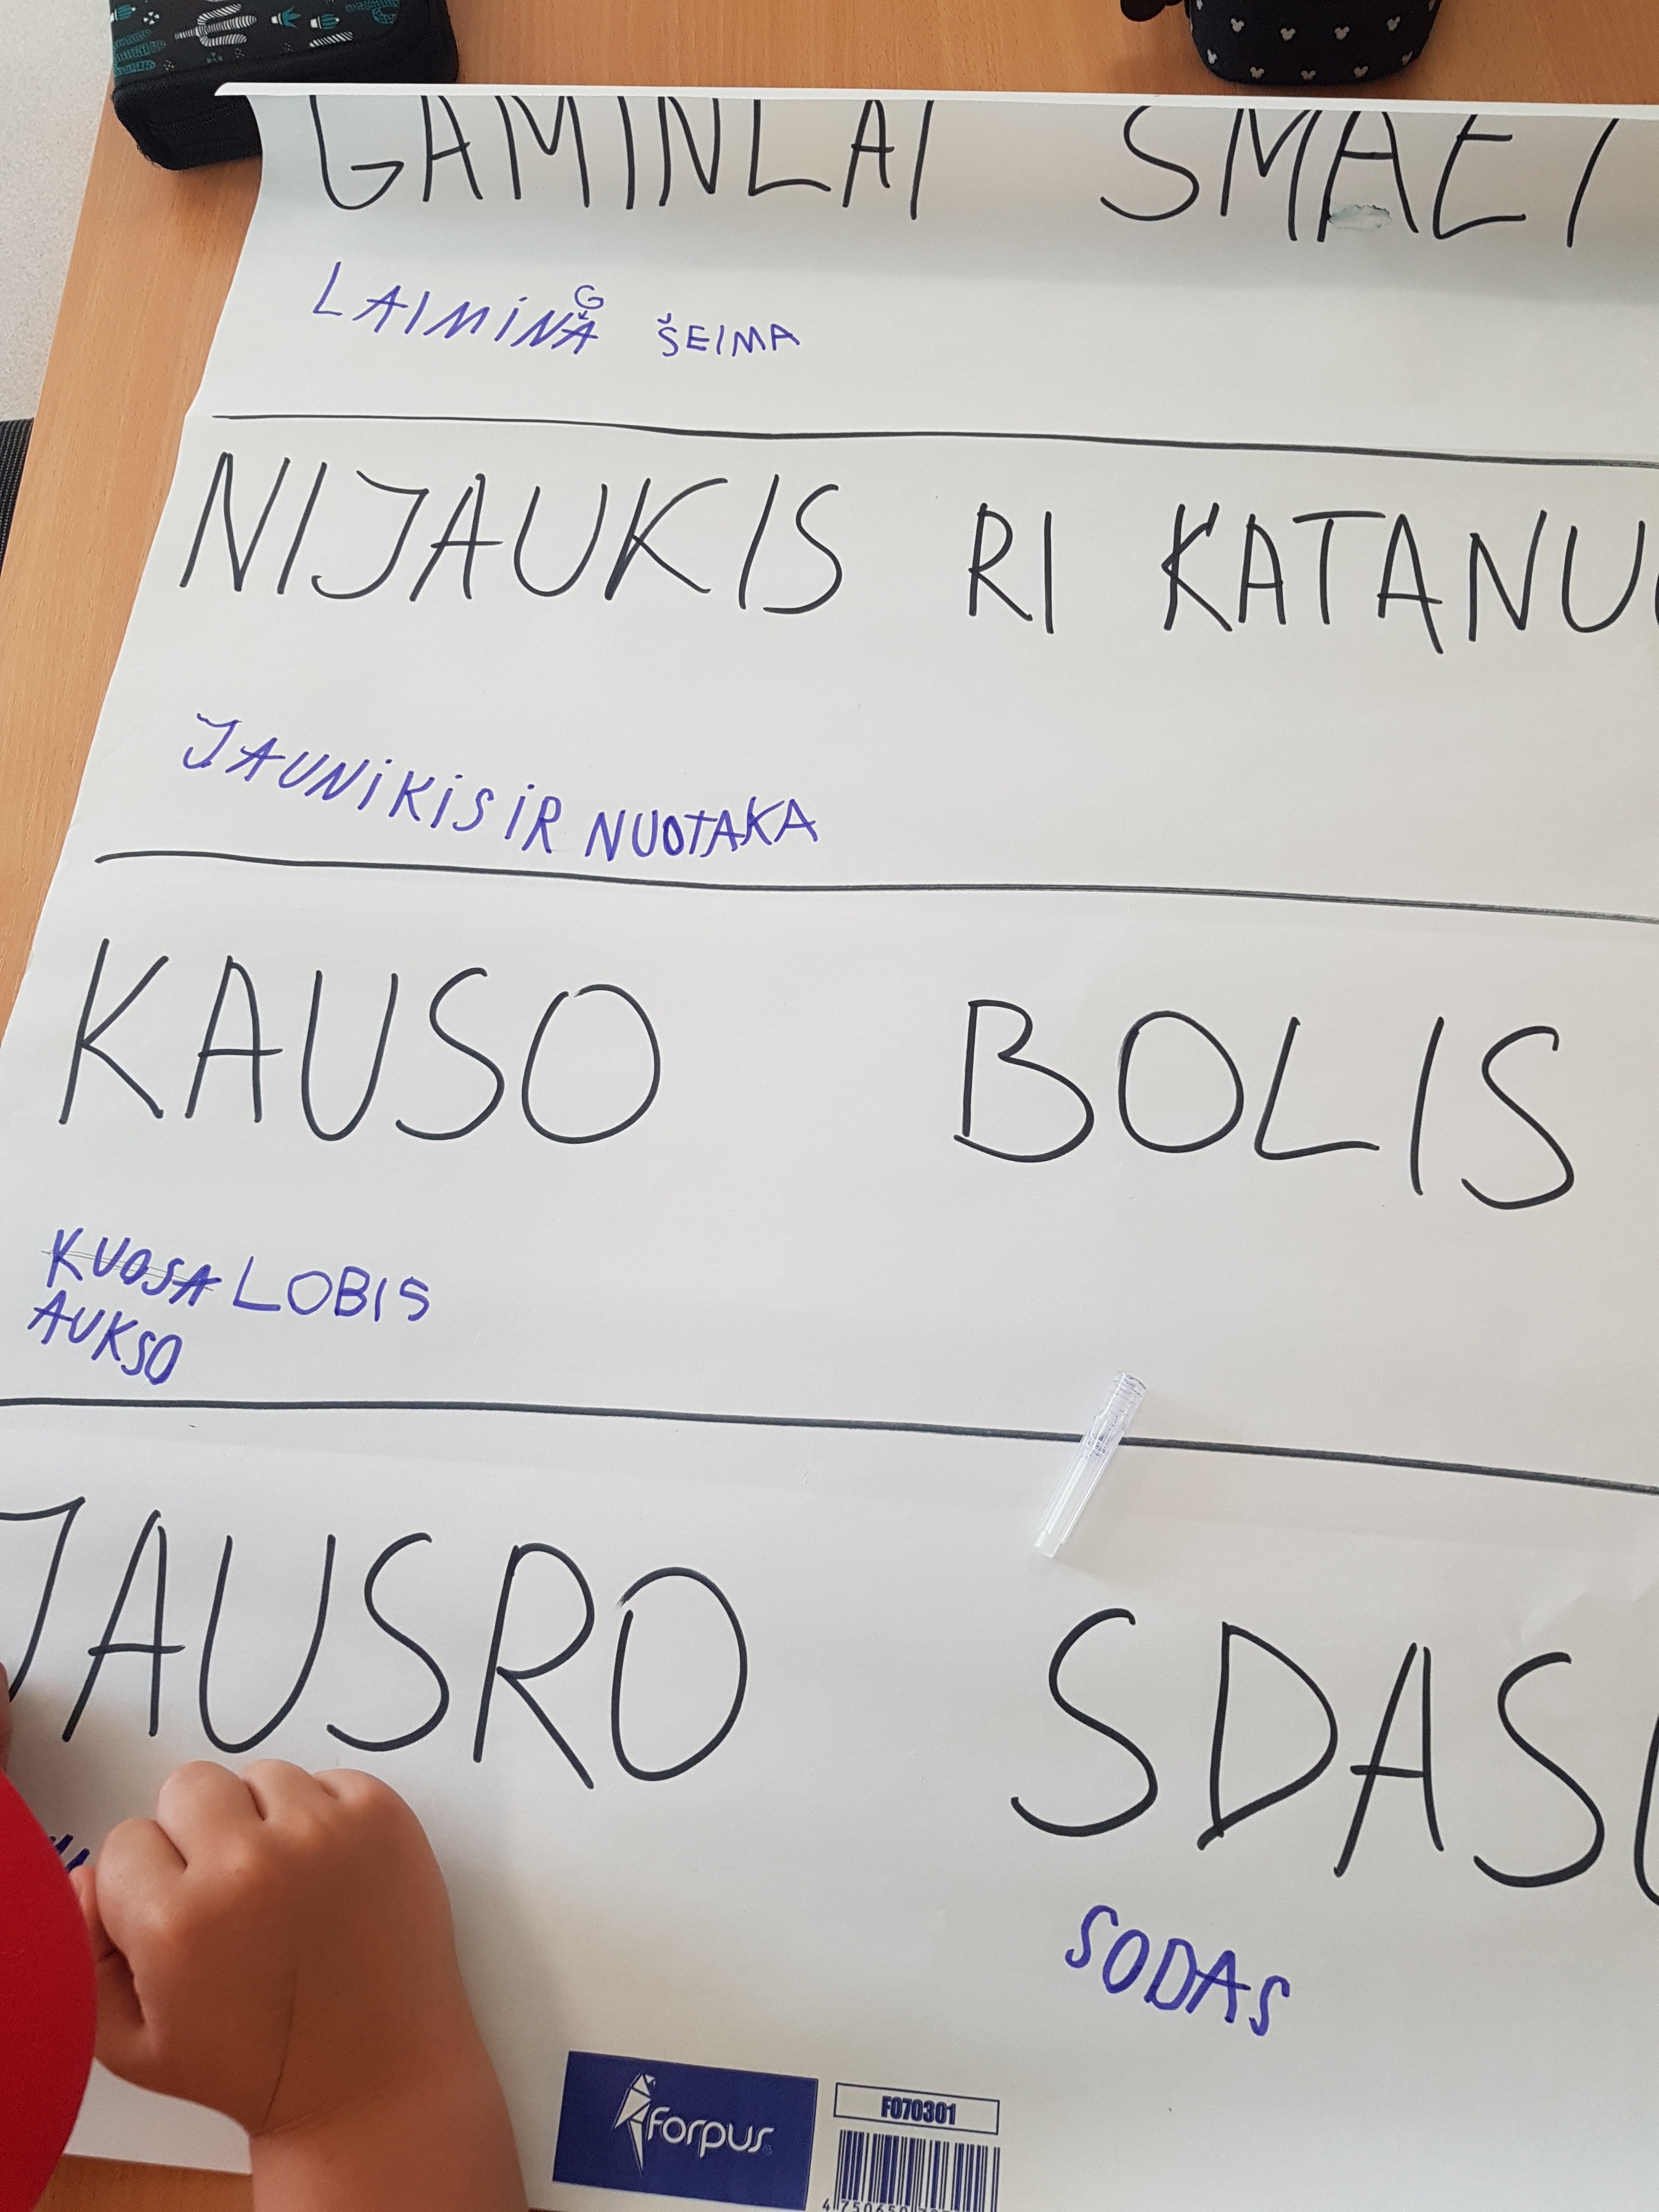 GAMINLAI SMAEI
LAIMINGA ŠEIMA
NIJAUKIS RI KATANUO
JAUNIKIS IR NUOTAKA
KAUSO BOLIS
KUOSA LOBIS
AUKSO
JAUSRO SDASO
SODAS
forpus
F070301